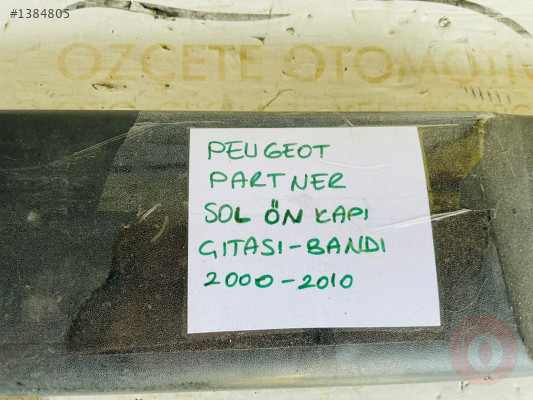 #1384805
OZCETE OTOMOTİV
PEUGEOT
PARTNER
SOL ÖN KAPI
GITASI-BANDI
2000-2010